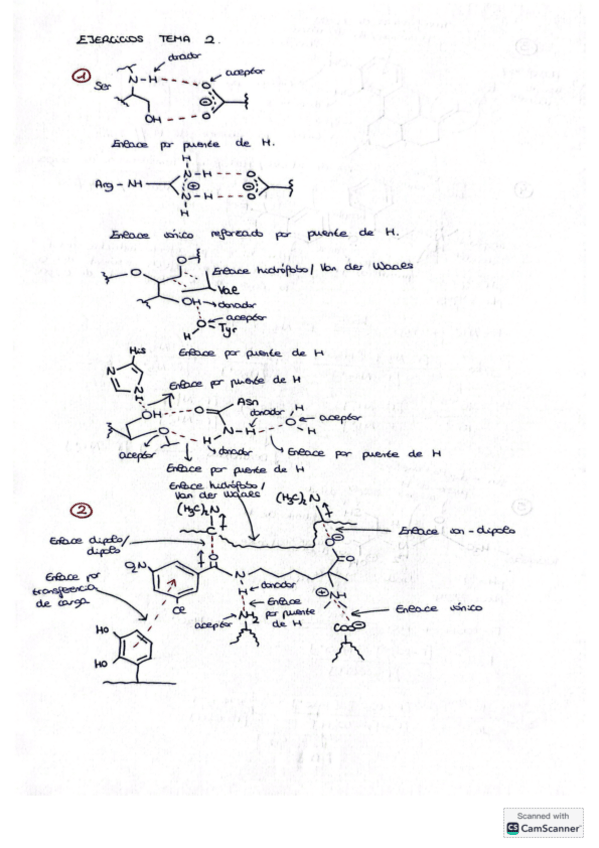 EJERCICIOS TEMA 2.
donador
1
Ser
N-H
O
aceptor
OH
O
Enlace por puente de H.
H
Arg-NH
N-H
O
N-H
O
H
Enlace iónico reforzado por puente de H.
O
O
Enlace hidrófobo/Van der Waals
Val
OH
donador
aceptor
O
Tyr
H
His
Enlace por puente de H
N
N
H
Enlace por puente de H
Asn
OH
O
donador
H
O
aceptor
N-H
H
O
H
aceptor
donador
Enlace por puente de H
Enlace por puente de H
Enlace hidrófobo/
Van der Waals
2
(H3C)2N
(H3C)2N
C
Enlace ion-dipolo
Enlace dipolo/
dipolo
O
O
O
O2N
N
Enlace por
transferencia
de carga
H
donador
NH
Cl
Enlace
por puente
de H
NH2
aceptor
Enlace iónico
HO
COO
HO
Scanned with
CS CamScanner